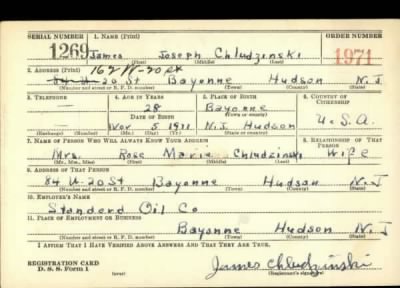 SERIAL NUMBER 1. NAME (Print) ORDER NUMBER
1269 James Joseph Chludzinski 1971
(First) (Middle) (Last)
2. ADDRESS (Print) 162 W-20
84 W-20 St Bayonne Hudson N.J
(Number and street or R. F. D. number) (Town) (County) (State)
3. TELEPHONE 4. AGE IN YEARS 5. PLACE OF BIRTH 6. COUNTRY OF CITIZENSHIP
— 28 Bayonne
DATE OF BIRTH (Town or county)
— Nov 5 1911 N.J. Hudson U.S.A.
(Exchange) (Number) (Mo.) (Day) (Yr.) (State or country)
7. NAME OF PERSON WHO WILL ALWAYS KNOW YOUR ADDRESS 8. RELATIONSHIP OF THAT PERSON
Mrs. Rose Marie Chludzinski Wife
(Mr., Mrs., Miss) (First) (Middle) (Last)
9. ADDRESS OF THAT PERSON
84 W-20 St Bayonne Hudson N.J
(Number and street or R. F. D. number) (Town) (County) (State)
10. EMPLOYER'S NAME
Standard Oil Co
11. PLACE OF EMPLOYMENT OR BUSINESS
Bayonne Hudson N.J
(Number and street or R. F. D. number) (Town) (County) (State)
I AFFIRM THAT I HAVE VERIFIED ABOVE ANSWERS AND THAT THEY ARE TRUE.
REGISTRATION CARD
D. S. S. Form 1 (over) James Chludzinski
(Registrant's signature)